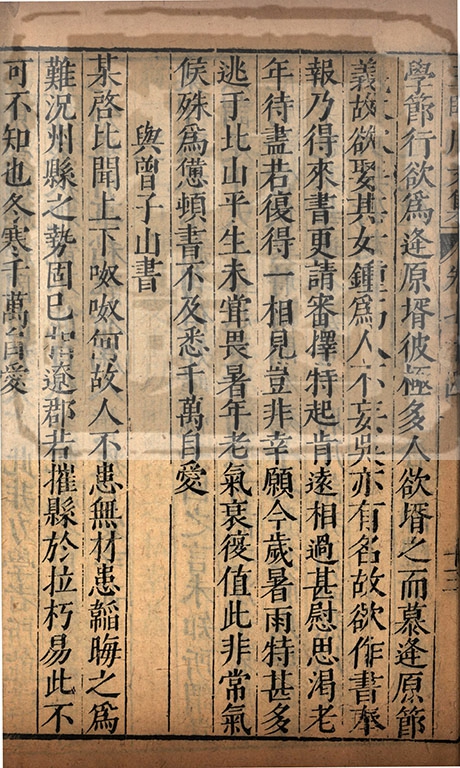 學節行欲爲逢原壻彼極多人欲壻之而慕逢原節
義故欲娶其女鍾爲人不妄吳亦有名故欲作書奉
報乃得來書更請審擇特起肯遠相過甚慰思渴老
年待盡若復得一相見豈非幸願今歲暑雨特甚多
逃于比山平生未甞畏暑年老氣衰復值此非常氣
候殊爲憊頓書不及悉千萬自愛
與曾子山書
某啓比聞上下呶呶何故人不患無材患韜晦之爲
難況州縣之勢固已遼郡若摧縣於拉朽易此不
可不知也冬寒千萬自愛